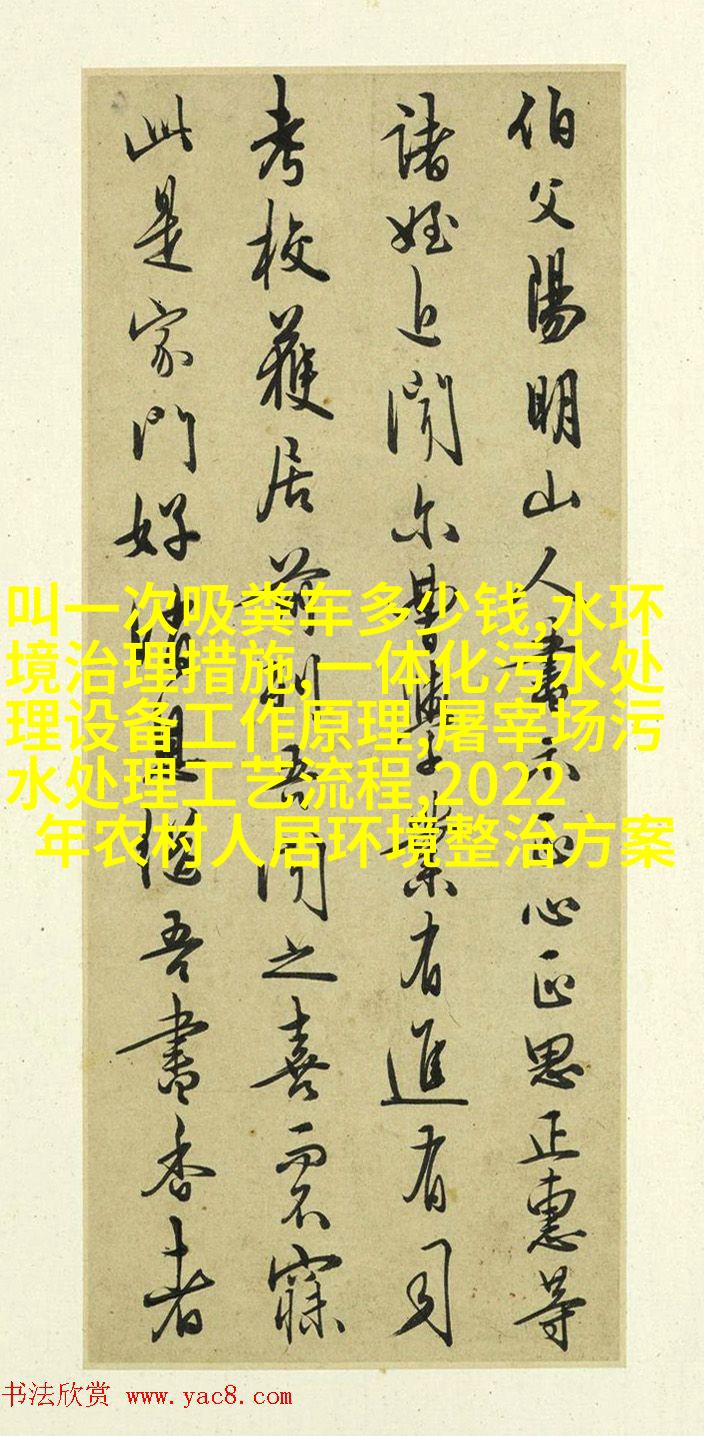 伯父陽明山人書示正心正思正惠等
諸姪近聞尔曹學業有進有司
考校獲居前列吾聞之喜而不寐
此是家門好消息繼吾書香者
叫一次吸粪车多少钱,水环
境治理措施,一体化污水处
理设备工作原理,屠宰场污
水处理工艺流程,2022
年农村人居环境整治方案
书法欣赏 www.yac8.com